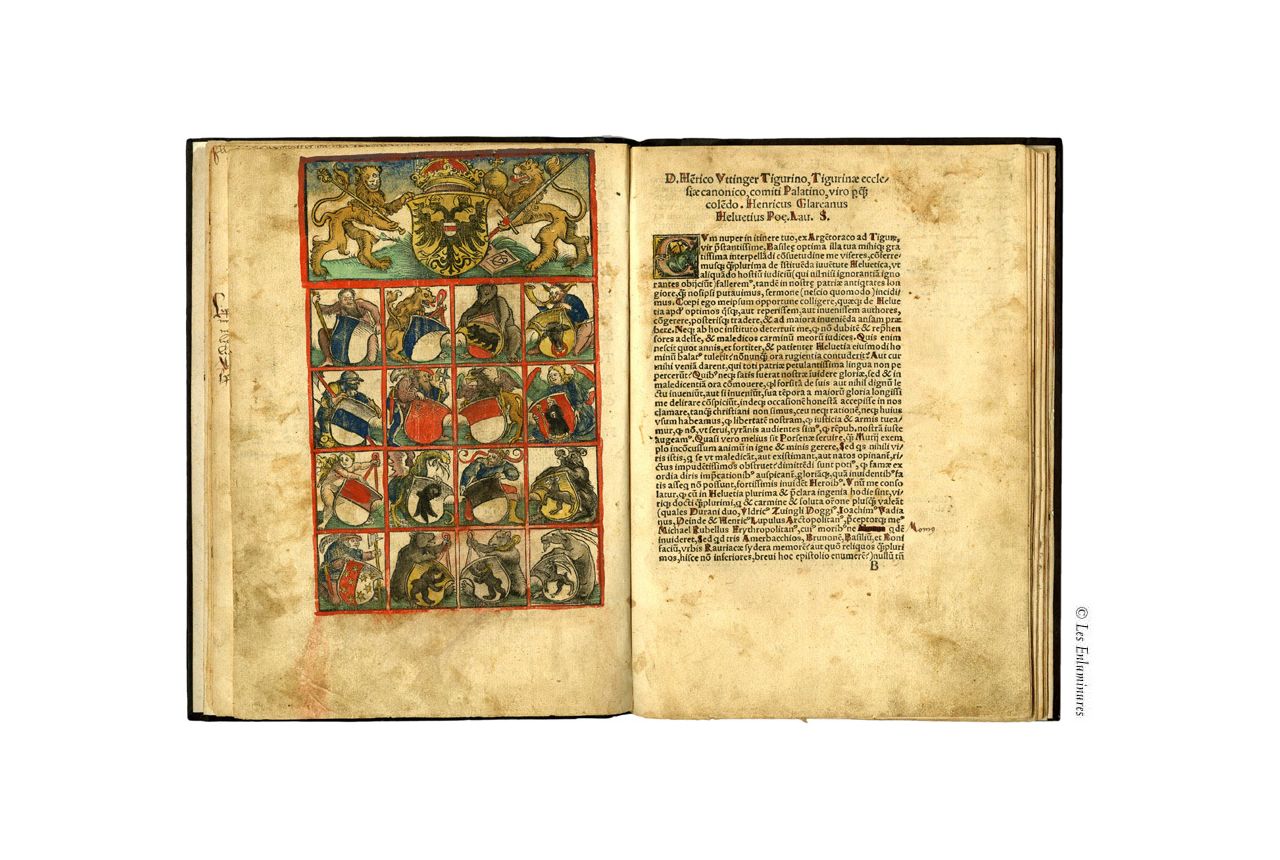 D. Hērico Vttinger Tigurino, Tigurinæ eccle-
siæ canonico, comiti Palatino, viro pq̄ȝ
colēdo. Henricus Glareanus
Heluetius Poę. Lau. S.
CVm nuper in itinere tuo, ex Argētoraco ad Tigurȝ,
vir p̄stantissime. Basileę optima illa tua mihiq; gra
tissima interpellādi cōsuetudine me viseres, cōferre
musq; q̄plurima de istituēda iuuētute Heluetica, vt
aliquādo hostiū iudiciū (qui nil nisi ignorantiā igno
rantes obijciūt) fallerem⁹, tandē in nostrę patriæ antiqtates lon
giore, q̄ȝ nosipsi putauimus, sermone (nescio quomodo) incidi
mus. Cœpi ego meipsum opportune colligere, quæq; de Helue
tia apd' optimos q̄sq;, aut reperissem, aut inuenissem authores,
cōgerere, posterisq; tradere, & ad maiora inueniēda ansam præ
bere. Neq; ab hoc instituto deterruit me, ꝙ nō dubitē & rep̄hen
sores adesse, & maledicos carminū meorū iudices. Quis enim
nescit quot annis, et fortiter, & patienter Heluetia eiusmodi ho
minū balat⁹ tulerit? nōnunq̄ȝ ora rugientia contuderit? Aut cur
mihi veniā darent, qui toti patriæ petulantissima lingua non pe
percerūt? Quib⁹ neq; satis fuerat nostræ inuidere gloriæ, sed & in
maledicentiā ora cōmouere, ꝙ forsitā de suis aut nihil dignū le
ctu inueniūt, aut si inueniūt, sua tēpora a maiorū gloria longissi
me delirare cōspiciūt, indeq; occasionē honestā accepisse in nos
clamare, tanq̄ȝ christiani non simus, ceu neq; rationē, neq; huius
vsum habeamus, ꝙ libertatē nostram, ꝙ iusticia & armis tuea-
mur, ꝙ nō, vt serui, tyrānis audientes sim⁹, ꝙ rēpub. nostrā iuste
augeam⁹. Quasi vero melius sit Porsenæ seruire, q̄ȝ Mutij exem
plo incōcussum animū in igne & minis gerere. Sed qs nihili vi
ris istis, q se vt maledicāt, aut existimant, aut natos opinant̄, ri-
ctus impudētissimos obstruet? dimittēdi sunt poti⁹, ꝙ famæ ex
ordia diris imp̄cationib⁹ auspicant̄, gloriāq;, quā inuidentib⁹ fa
tis asseq nō possunt, fortissimis inuidēt Heroib⁹. Vnū me conso
latur, ꝙ cū in Heluetia plurima & p̄clara ingenia hodie sint, vi-
riq; docti q̄plurimi, q & carmine & soluta orōne plusq̄ȝ valeāt
(quales Durani duo, Vldric⁹ Zuingli Doggi⁹, Ioachim⁹ Vadia
nus, Deinde & Henric⁹ Lupulus Arctopolitan⁹, p̄ceptorq; me⁹
Michael Rubellus Erythropolitan⁹, cui⁹ morib⁹ ne qdē Mom⁹
inuideret, Sed qd tris Amerbacchios, Brunonē, Basiliū, et Boni
faciū, vrbis Rauriacæ sydera memorē? aut quō reliquos q̄pluri
mos, hisce nō inferiores, breui hoc epistolio enumerē?) nullū tn̄
B
© Les Enluminures